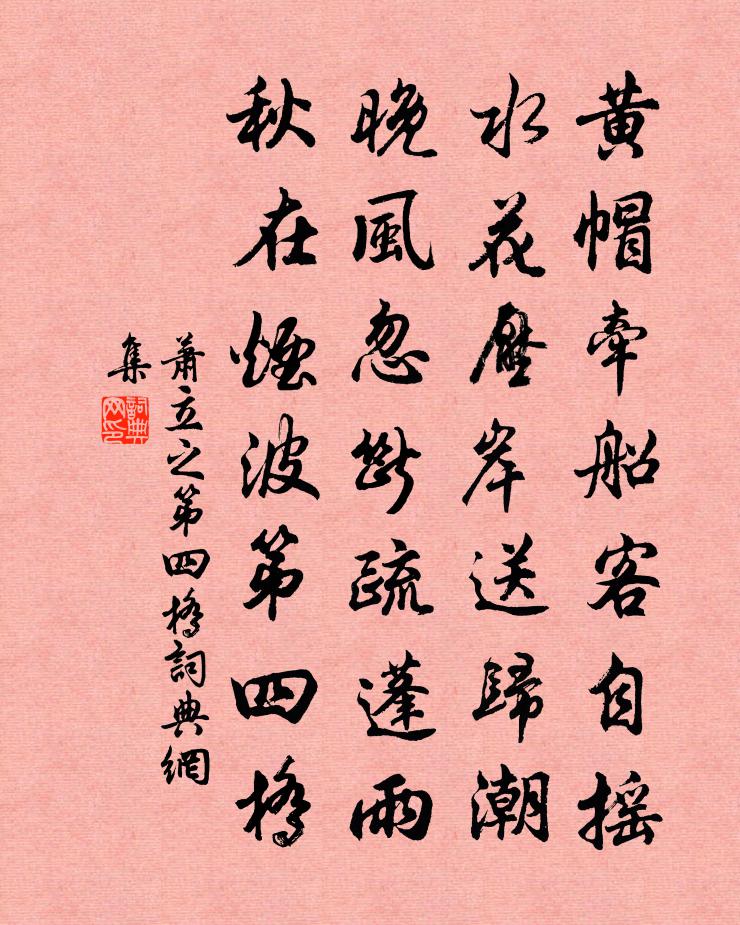 黄帽牽船客自摇
水花壓岸送歸潮
晚風忽斷疏蓬雨
秋在煙波第四橋
蕭立之第四橋詞典網
集
詞典網印